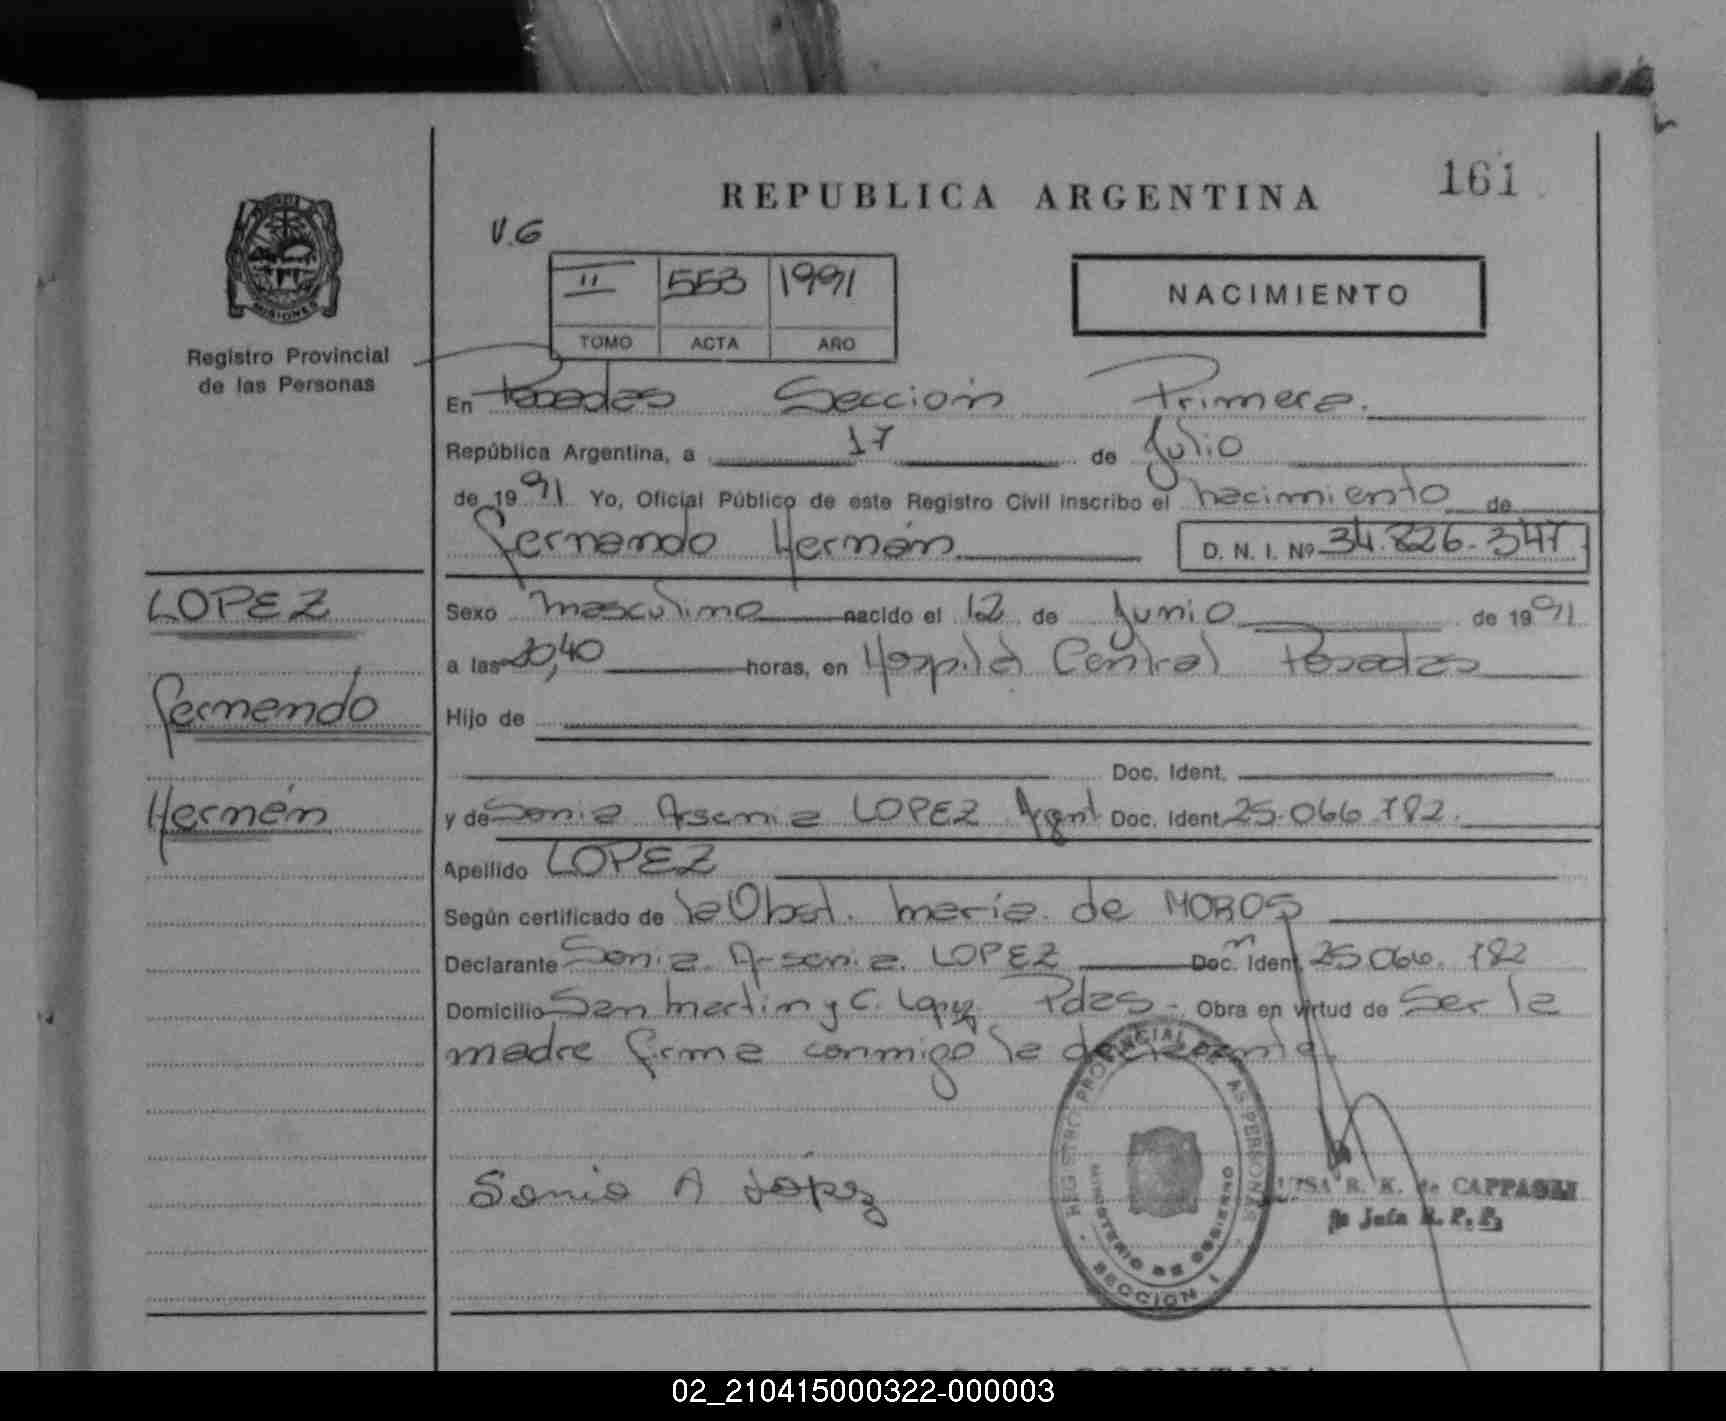 REPUBLICA ARGENTINA
161
V.G
II 553 1991
TOMO ACTA AÑO
NACIMIENTO
MISIONES
Registro Provincial
de las Personas
En Posadas Sección Primera.
República Argentina, a 17 de Julio
de 1991 Yo, Oficial Público de este Registro Civil inscribo el nacimiento de
Fernando Hernán D. N. I. Nº 34.826.347
LOPEZ
Fernando
Hernán
Sexo masculino nacido el 12 de Junio de 1991
a las 20,40 horas, en Hospital Central Posadas
Hijo de
Doc. Ident.
y de Sonia Arsenia LOPEZ Argent Doc. Ident. 25.066.782.
Apellido LOPEZ
Según certificado de la Obst. María de MOROS
Declarante Sonia Arsenia LOPEZ Doc. Ident. 25.066.782
Domicilio San Martin y C. Lopez Pdas - Obra en virtud de ser la
madre firma conmigo la declarante.
Sonia A López
REGISTRO PROVINCIAL DE LAS PERSONAS
MINISTERIO DE GOBIERNO
SECCION 1
LUISA R. K. de CAPPAGLI
Jefa R. P. P.
REPUBLICA ARGENTINA
02_210415000322-000003